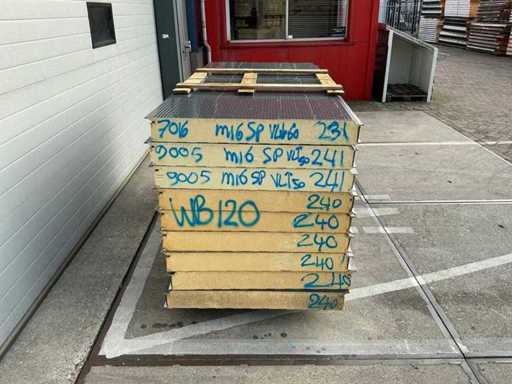 7016 M16 SP VLak60 231
9005 M16 SP VLI50 241
9005 M16 SP VLI50 241
240
WB120 240
240
240
240
240